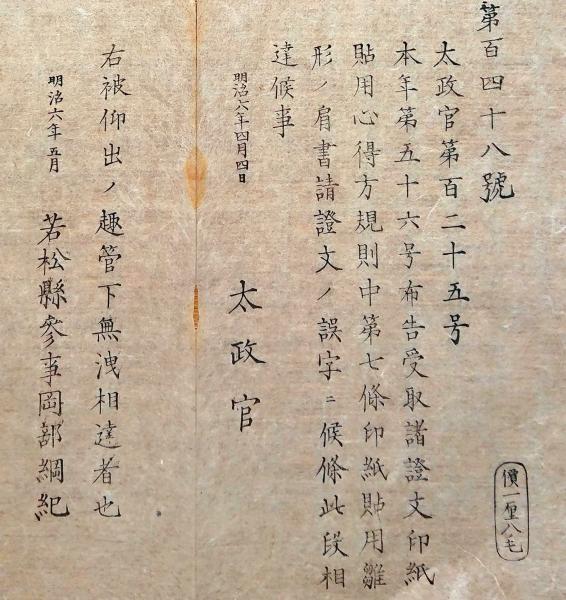 第百四十八號
太政官第百二十五号
本年第五十六号布告受取諸證文印紙
貼用心得方規則中第七條印紙貼用雛
形ノ肩書請證文ノ誤字ニ候條此段相
達候事
明治六年四月四日
太政官
右被仰出ノ趣管下無洩相達者也
明治六年五月
若松縣參事岡部綱紀
價一厘八毛